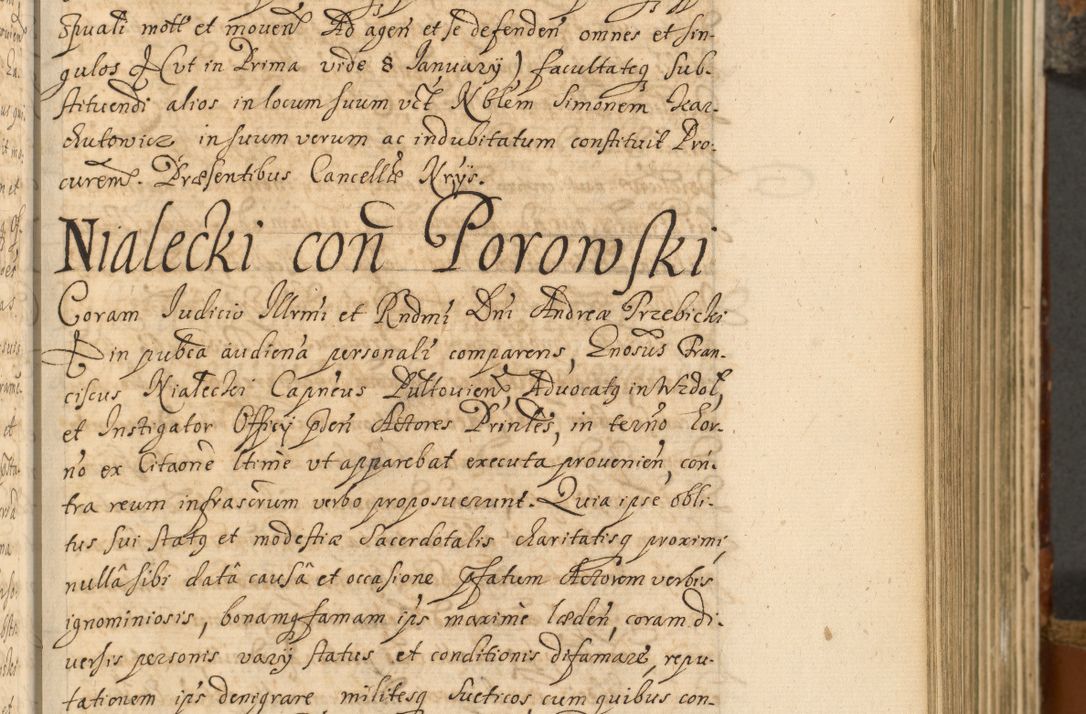 spuali mott et moven̄ Ad agen̄ et se defenden̄ omnes et sin-
gulos (ut in Prima vide 8 Januarÿ) facultateq₃ sub-
stituendi alios in locum suum uct Nblem Simonem
chutowicz in suum verum ac indubitatum constituit Pro-
curem̄. Præsentibus Cancellæ Nrÿs.
Nialecki con̄ Porowski
Coram Judicio Illrmi et Rndmi Dni Andreæ Trzebicki
in pubca audiena personali comparens, Enosus Fran-
ciscus Nialecki Capneus Pultovien̄, Advocatq in Wzdol,
et Instigator Officy pden̄ Actores Prinles, in terno hor-
no ex Citaone ltime vt apparebat executa provenien̄, con-
tra reum infrascrum verbo proposuerunt. Quia ipse obli-
tus sui statq et modestiæ Sacerdotalis charitatisq proximi,
nullâ sibi datâ causâ et occasione pfatum Actorem verbis
ignominiosis, bonamq famam ips maxime læden̄, coram di-
versis personis varÿ status et conditionis difamare, repu-
tationem ips denigrare militesq Sueticos cum quibus con-